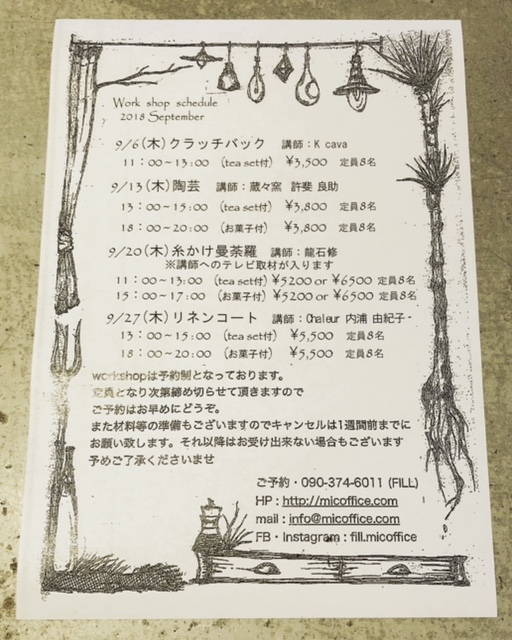 Work shop schedule
2018 September
9/6(木)クラッチバック 講師：K cava
11：00～13：00 (tea set付) ¥3,500 定員8名
9/13(木)陶芸 講師：蔵々窯 許斐 良助
13：00～15：00 (tea set付) ¥3,800 定員8名
18：00～20：00 (お菓子付) ¥3,800 定員8名
9/20(木)糸かけ曼荼羅 講師：龍石修
※講師へのテレビ取材が入ります
11：00～13:00 (tea set付) ¥5200 or ¥6500 定員8名
15：00～17：00 (お菓子付) ¥5200 or ¥6500 定員8名
9/27(木)リネンコート 講師：Chaleur 内浦 由紀子
13：00～15：00 (tea set付) ¥5,500 定員8名
18：00～20：00 (お菓子付) ¥5,500 定員8名
workshopは予約制となっております。
定員となり次第締め切らせて頂きますので
ご予約はお早めにどうぞ。
また材料等の準備もございますのでキャンセルは1週間前までに
お願い致します。それ以降はお受け出来ない場合もございます
予めご了承くださいませ
ご予約・090-374-6011 (FILL)
HP : http://micoffice.com
mail : info@micoffice.com
FB・Instagram : fill.micoffice